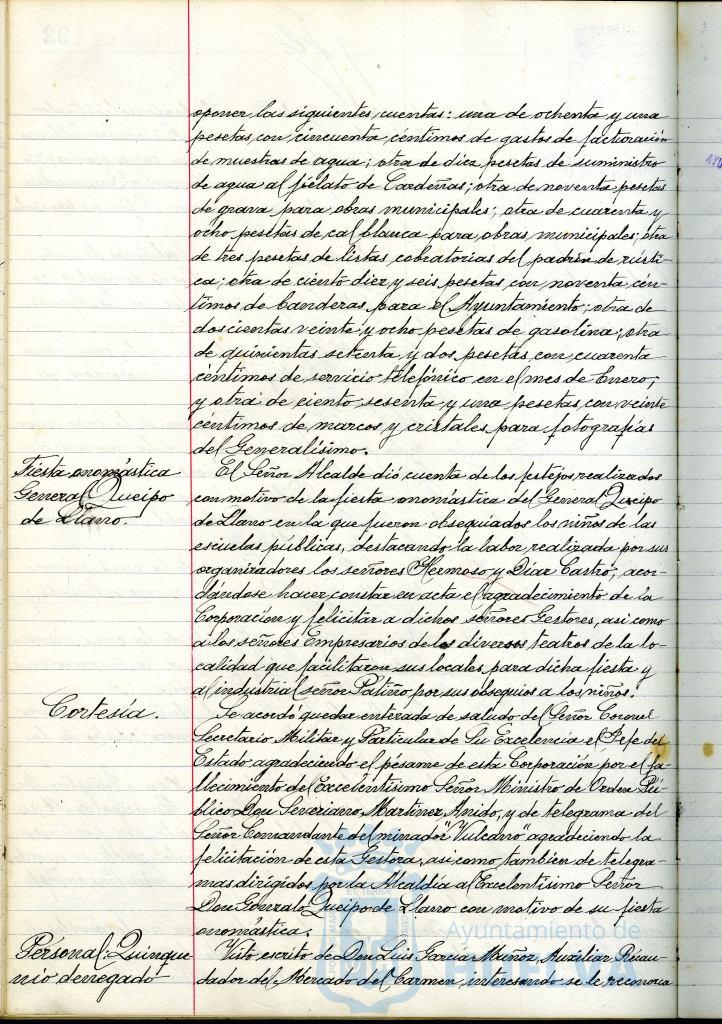 oponer las siguientes cuentas: una de ochenta y una
pesetas con cincuenta céntimos de gastos de facturación
de muestras de agua; otra de diez pesetas de suministro
de agua al fielato de Cardeñas; otra de noventa pesetas
de grava para obras municipales; otra de cuarenta y
ocho pesetas de cal blanca para obras municipales; otra
de tres pesetas de listas cobratorias del padrón de rústi-
ca; otra de ciento diez y seis pesetas con noventa cén-
timos de banderas para el Ayuntamiento; otra de
doscientas veinte y ocho pesetas de gasolina; otra
de quinientas setenta y dos pesetas con cuarenta
céntimos de servicio telefónico en el mes de Enero;
y otra de ciento sesenta y una pesetas con veinte
céntimos de marcos y cristales para fotografías
del Generalísimo.
Fiesta onomástica
General Queipo
de Llano.
El Señor Alcalde dió cuenta de los festejos realizados
con motivo de la fiesta onomástica del General Queipo
de Llano en la que fueron obsequiados los niños de las
escuelas públicas, destacando la labor realizada por sus
organizadores los señores Hermoso y Díaz Castro; acor-
dándose hacer constar en acta el agradecimiento de la
Corporación y felicitar a dichos señores Gestores, así como
a los señores Empresarios de los diversos teatros de la lo-
calidad que facilitaron sus locales para dicha fiesta y
al industrial señor Patiño por sus obsequios a los niños.
Cortesía.
Se acordó quedar enterada de saludo del Señor Coronel
Secretario Militar y Particular de Su Excelencia el Jefe del
Estado agradeciendo el pésame de esta Corporación por el fa-
llecimiento del Excelentísimo Señor Ministro de Orden Pú-
blico Don Severiano Martínez Anido; y de telegrama del
Señor Comandante del minador "Vulcano" agradeciendo la
felicitación de esta Gestora, así como tambien de telegra-
mas dirigidos por la Alcaldía al Excelentísimo Señor
Don Gonzalo Queipo de Llano con motivo de su fiesta
onomástica.
Personal: Quinque
nio denegado
Visto escrito de Don Luis García Muñoz, Auxiliar Recau-
dador del Mercado del Carmen, interesando se le reconozca
Ayuntamiento de
HUELVA